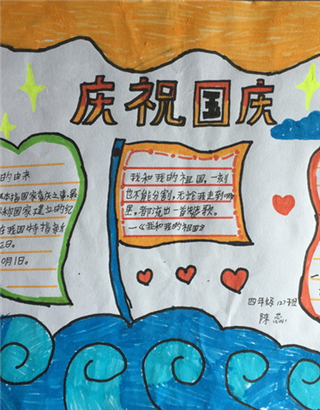 庆祝国庆
的由来
本指国家喜庆之事,最
称国家建立的纪
在我国特指每
日。
0月1日。
我和我的祖国,一刻
也不能分割,无论我走到哪
里,都流出一首赞歌。
—《我和我的祖国》
四年级(2)班
陈蕊